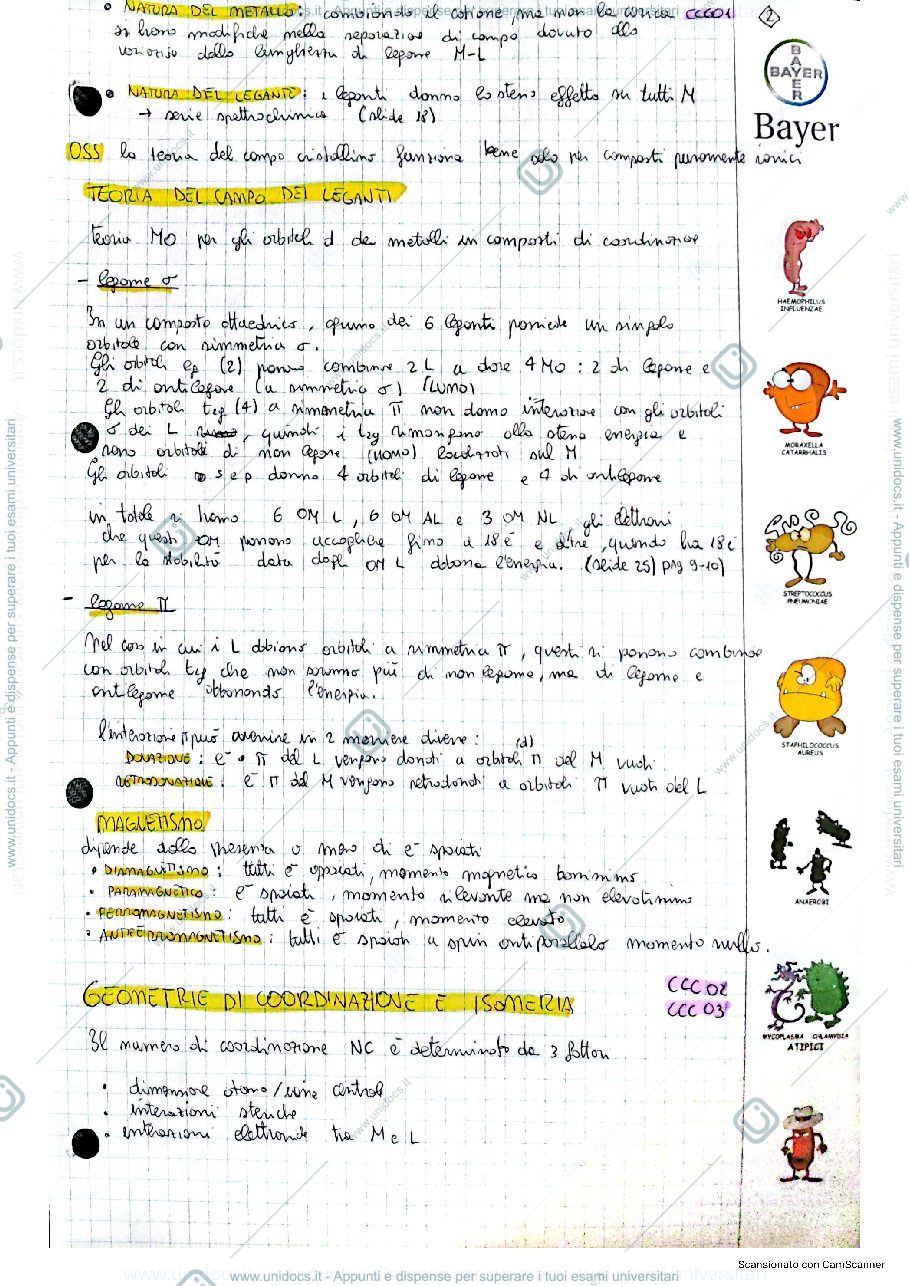 NATURA DEL METALLO: cambiando il catione, ma non la carica CCC01
si hanno modifiche nella separazione di campo dovuto alla
variazione della lunghezza di legame M-L
2
BAYER
BAYER
Bayer
NATURA DEL LEGANTE: i leganti danno lo stesso effetto su tutti M
→ serie spettrochimica (slide 18)
OSS la teoria del campo cristallino funziona bene solo per composti puramente ionici
TEORIA DEL CAMPO DEI LEGANTI
teoria MO per gli orbitali d dei metalli in composti di coordinazione
- legame σ
In un composto ottaedrico, ognuno dei 6 leganti possiede un singolo
orbitale con simmetria σ.
Gli orbitali eg (2) possono combinare 2 L a dare 4 MO: 2 di legame e
2 di antilegame (a simmetria σ) (LUMO)
Gli orbitali t2g (4) a simmetria π non danno interazione con gli orbitali
σ dei L, quindi i t2g rimangono alla stessa energia e
sono orbitali di non legame (HOMO) localizzati sul M
Gli orbitali s e p danno 4 orbitali di legame e 4 di antilegame
in totale si hanno 6 OM L, 6 OM AL e 3 OM NL gli elettroni
che questi OM possono accogliere fino a 18 e⁻ e oltre, quando ha 18 e⁻
per la stabilità data dagli OM L abbassa l'energia. (slide 25) pag 9-10)
- legame π
Nel caso in cui i L abbiano orbitali a simmetria π, questi si possono combinare
con orbitali t2g che non saranno più di non legame, ma di legame e
antilegame abbassando l'energia.
l'interazione π può avvenire in 2 maniere diverse:
(d)
DONAZIONE: e⁻ π del L vengono donati a orbitali π del M vuoti
RETRODONAZIONE: e⁻ π del M vengono retrodonati a orbitali π vuoti del L
MAGNETISMO
dipende dalla presenza o meno di e⁻ spaiati
DIAMAGNETISMO: tutti e⁻ appaiati, momento magnetico bassissimo
PARAMAGNETICO: e⁻ spaiati, momento rilevante ma non elevatissimo
FERROMAGNETISMO: tutti e⁻ spaiati, momento elevato
ANTIFERROMAGNETISMO: tutti e⁻ spaiati a spin antiparallelo momento nullo.
GEOMETRIE DI COORDINAZIONE E ISOMERIA CCC02
CCC03
Il numero di coordinazione NC è determinato da 3 fattori
dimensione atomo/ione centrale
interazioni steriche
interazioni elettroniche tra M e L
HAEMOPHILUS
INFLUENZAE
MORAXELLA
CATARRHALIS
STREPTOCOCCUS
PNEUMONIAE
STAPHILOCOCCUS
AUREUS
ANAEROBI
MYCOPLASMA CHLAMYDIA
ATIPICI
Scansionato con CamScanner
www.unidocs.it - Appunti e dispense per superare i tuoi esami universitari